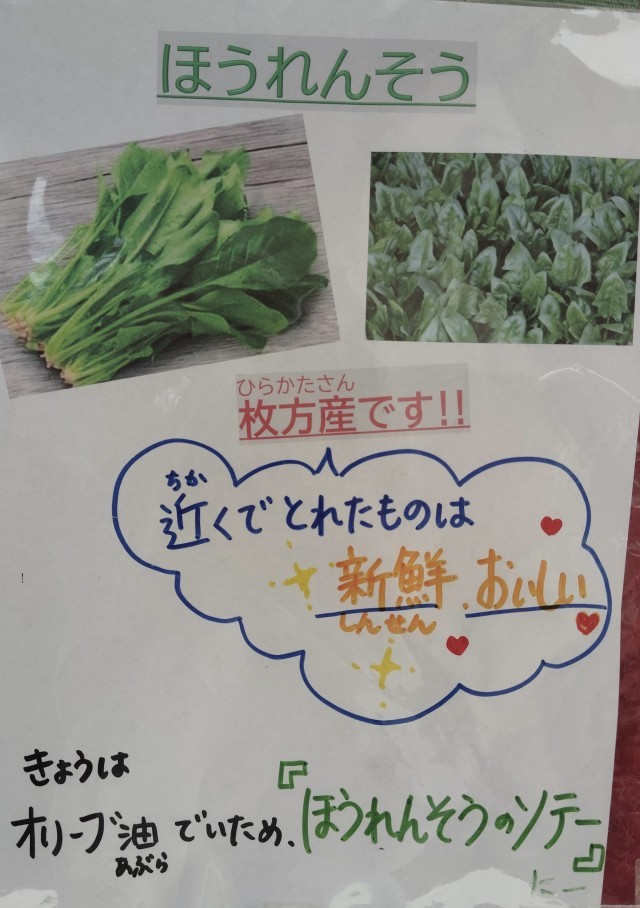 ほうれんそう
ひらかたさん
枚方産です!!
ちか
近くでとれたものは
新鮮、おいしい
しんせん
きょうは
オリーブ油でいため、『ほうれんそうのソテー』
あぶら
に